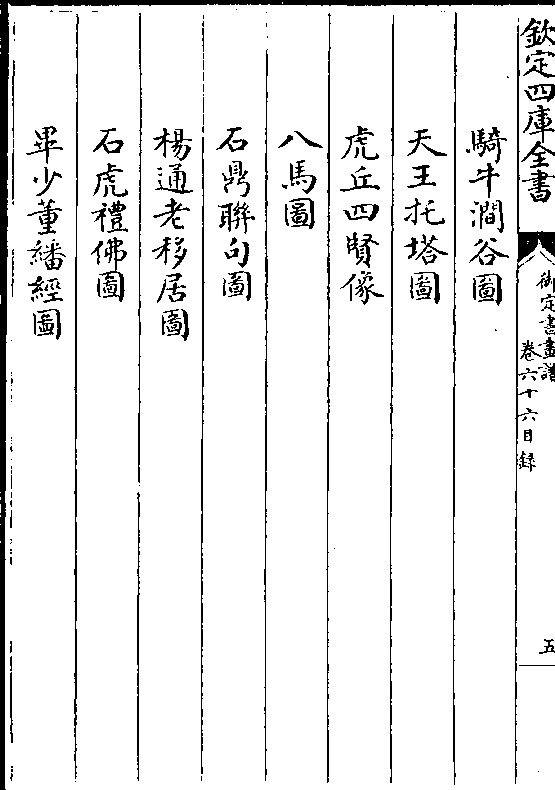 欽定四庫全書
御定書畫譜
卷六十六目錄
五
騎牛澗谷圖
天王托塔圖
虎丘四賢像
八馬圖
石鼎聯句圖
楊通老移居圖
石虎禮佛圖
畢少董繙經圖